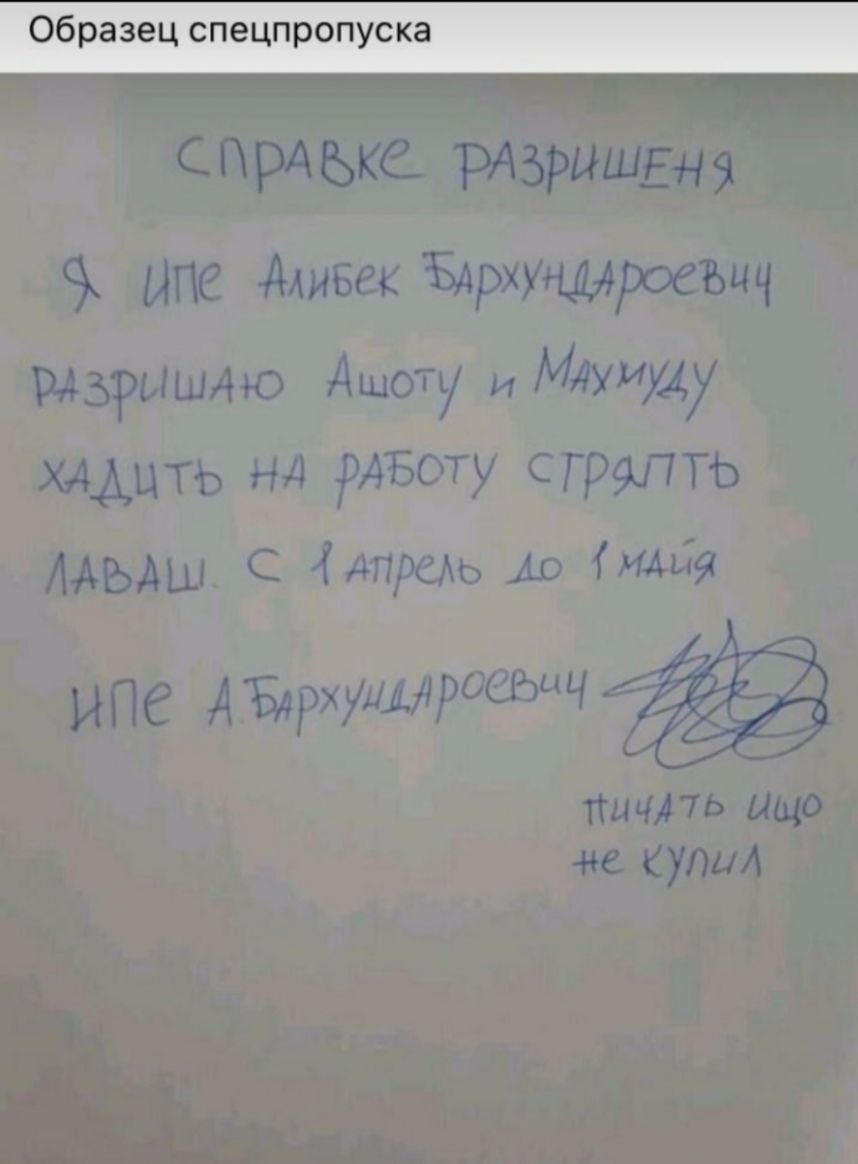 Образец спецпропуска
СПРАВКЕ РАЗРИШЕНЯ
Я ИПЕ АЛИБЕК БАРХУНДАРОЕВИЧ
РАЗРИШАЮ АШОТУ И МАХМУДУ
ХАДИТЬ НА РАБОТУ СТРЯПТЬ
ЛАВАШ. С 1 АПРЕЛЬ ДО 1 МАЙЯ
ИПЕ А.БАРХУНДАРОЕВИЧ
ПИЧАТЬ ИЩО
НЕ КУПИЛ